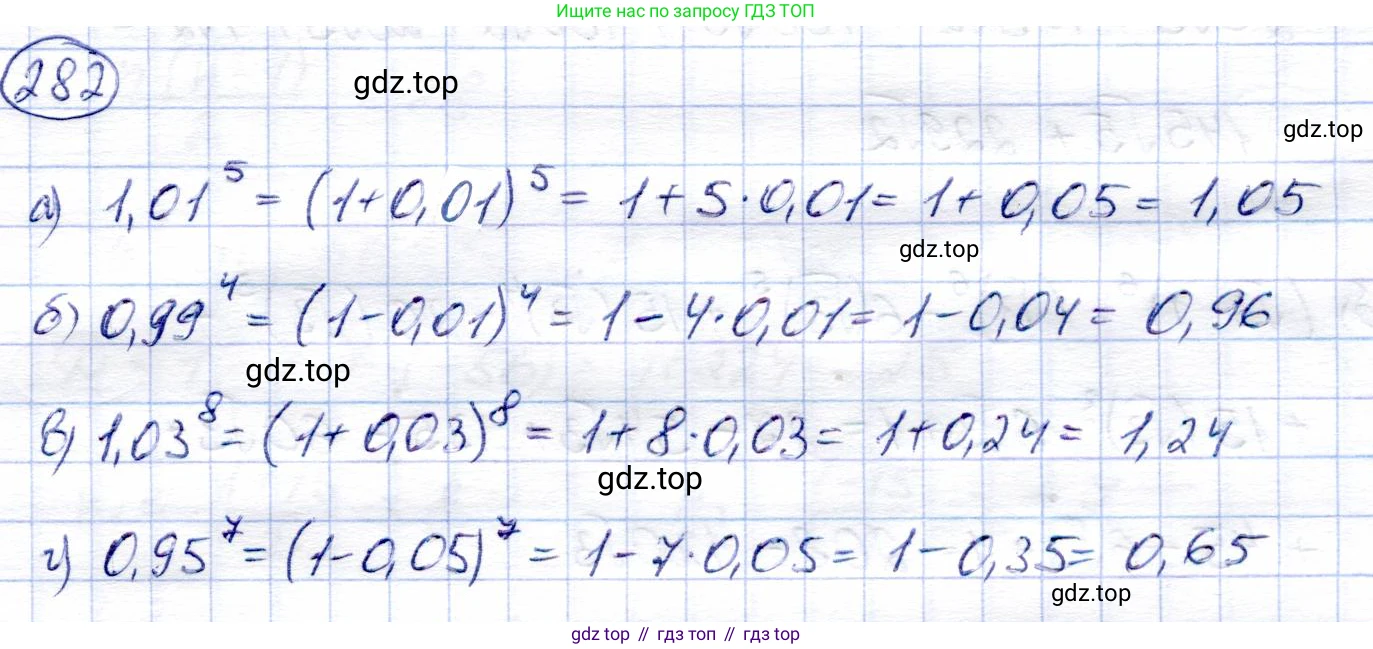 Ищите нас по запросу ГДЗ ТОП
282
gdz.top
gdz.top
а) 1,01⁵ = (1+0,01)⁵ = 1 + 5·0,01 = 1 + 0,05 = 1,05
gdz.top
б) 0,99⁴ = (1-0,01)⁴ = 1 - 4·0,01 = 1-0,04 = 0,96
gdz.top
в) 1,03⁸ = (1+0,03)⁸ = 1+8·0,03 = 1+0,24 = 1,24
gdz.top
г) 0,95⁷ = (1-0,05)⁷ = 1-7·0,05 = 1-0,35 = 0,65
gdz.top
gdz top // гдз топ // гдз top